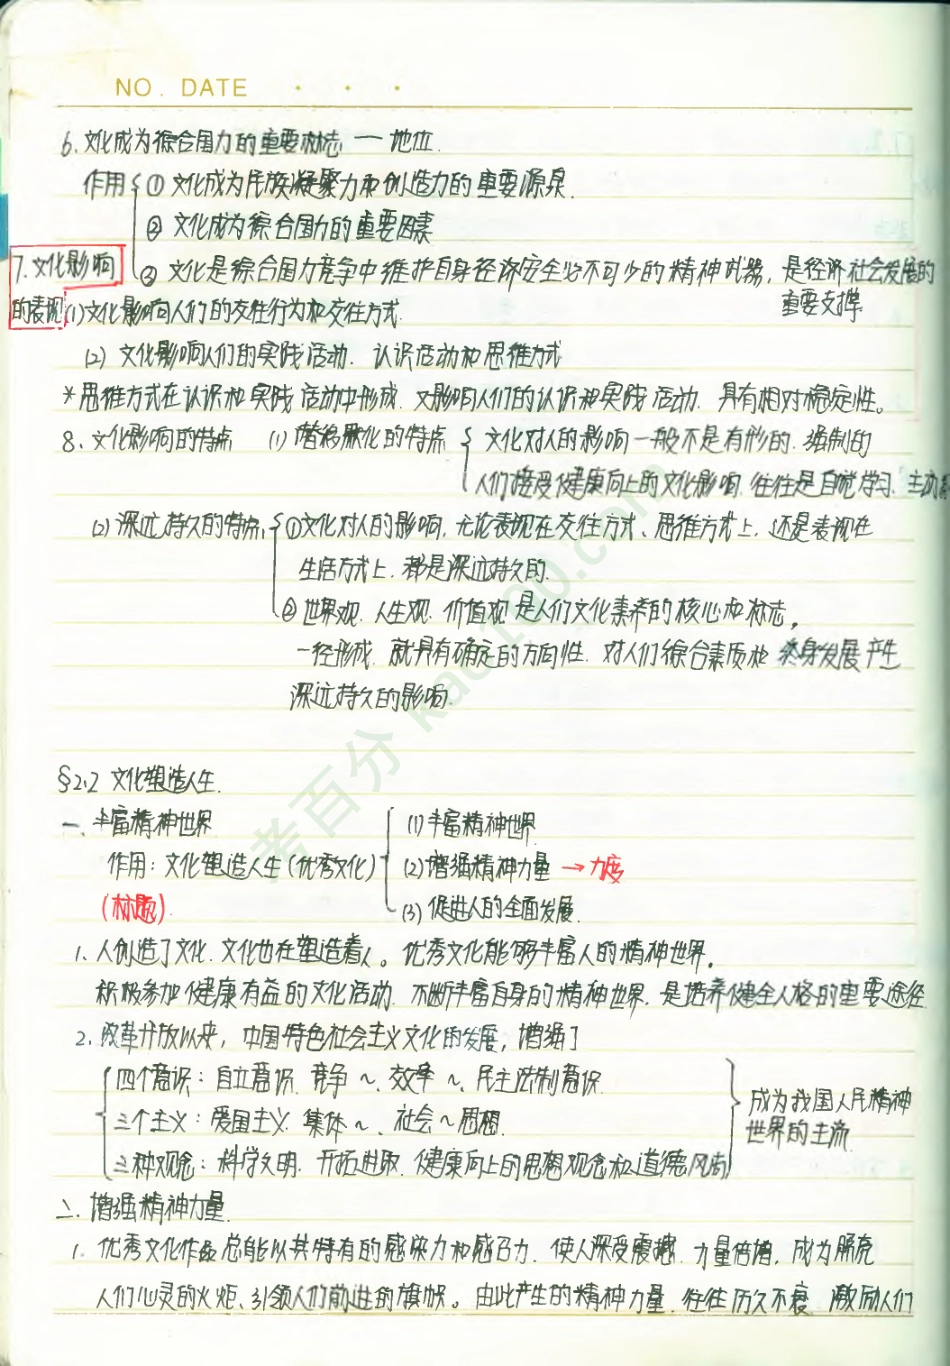 NO. DATE
6、文化成为综合国力的重要标志 — 地位.
作用 ① 文化成为民族凝聚力和创造力的重要源泉.
② 文化成为综合国力的重要因素
7.文化影响
③ 文化是综合国力竞争中维护自身经济安全必不可少的精神武器, 是经济社会发展的
重要支撑.
的表现
(1)文化影响人们的交往行为和交往方式.
(2) 文化影响人们的实践活动、认识活动和思维方式
*思维方式在认识和实践活动中形成. 又影响人们的认识和实践活动. 具有相对稳定性。
8、文化影响的特点 (1) 潜移默化的特点 文化对人的影响一般不是有形的、强制的
人们接受健康向上的文化影响. 往往是自觉学习、主动
(2) 深远持久的特点, ①文化对人的影响, 无论表现在交往方式、思维方式上, 还是表现在
生活方式上, 都是深远持久的.
② 世界观、人生观、价值观是人们文化素养的核心和标志。
一经形成, 就具有确定的方向性, 对人们综合素质和终身发展产生
深远持久的影响.
考百分 kao100.com
§2.2 文化塑造人生.
一、丰富精神世界 (1)丰富精神世界
作用: 文化塑造人生(优秀文化) (2)增强精神力量 → 力度
(标题). (3) 促进人的全面发展.
1、人创造了文化, 文化也在塑造着人。优秀文化能够丰富人的精神世界。
积极参加健康有益的文化活动, 不断丰富自身的精神世界, 是培养健全人格的重要途径
2、改革开放以来, 中国特色社会主义文化的发展, 增强了
四个意识: 自立意识、竞争~、效率~、民主法制意识.
三个主义: 爱国主义、集体~、社会~思想.
三种观念: 科学文明、开拓进取、健康向上的思想观念和道德风尚
成为我国人民精神
世界的主流
二、增强精神力量.
1. 优秀文化作品总能以其特有的感染力和感召力, 使人深受震撼、力量倍增, 成为照亮
人们心灵的火炬、引领人们前进的旗帜。由此产生的精神力量, 往往历久不衰, 激励人们